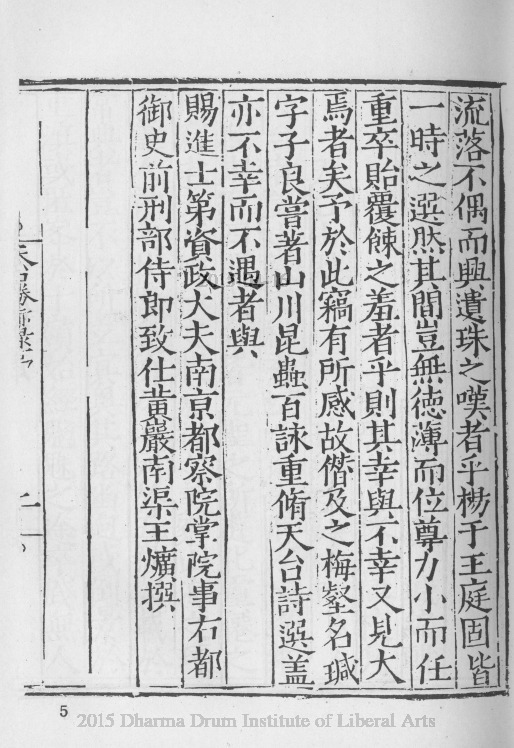 流落不偶而興遺珠之嘆者乎楊于王庭固皆
一時之選然其間豈無德薄而位尊力小而任
重卒貽覆餗之羞者乎則其幸與不幸又見大
焉者矣予於此竊有所感故僭及之梅壑名瑊
字子良嘗著山川昆蟲百詠重脩天台詩選盖
亦不幸而不遇者與
賜進士第資政大夫南京都察院掌院事右都
御史前刑部侍郎致仕黃巖南渠王爌撰
5
2015 Dharma Drum Institute of Liberal Arts